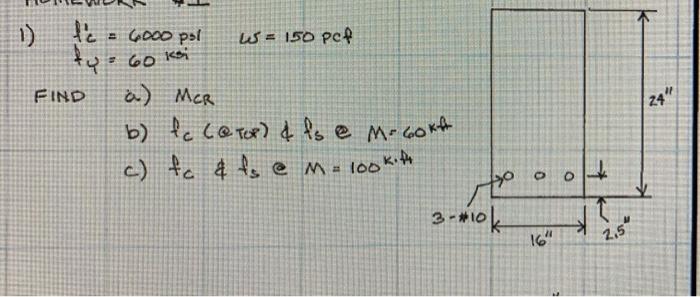 HOMEWORK #1
1) f'c = 6000 psi w = 150 pcf
fy = 60 ksi
FIND a) MCR
b) fc (@ TOP) & fs @ M = 60 k.ft
c) fc & fs @ M = 100 k.ft
24"
3-#10
16"
2.5"